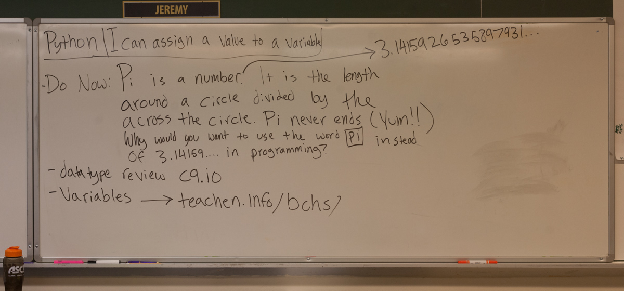 JEREMY
Python | I can assign a value to a variable
3.1415926535897931...
- Do Now: Pi is a number. It is the length
around a circle divided by the
across the circle. Pi never ends (Yum!!)
Why would you want to use the word Pi instead
of 3.14159.... in programming?
- datatype review c9.io
- Variables → teachen.info/bchs/